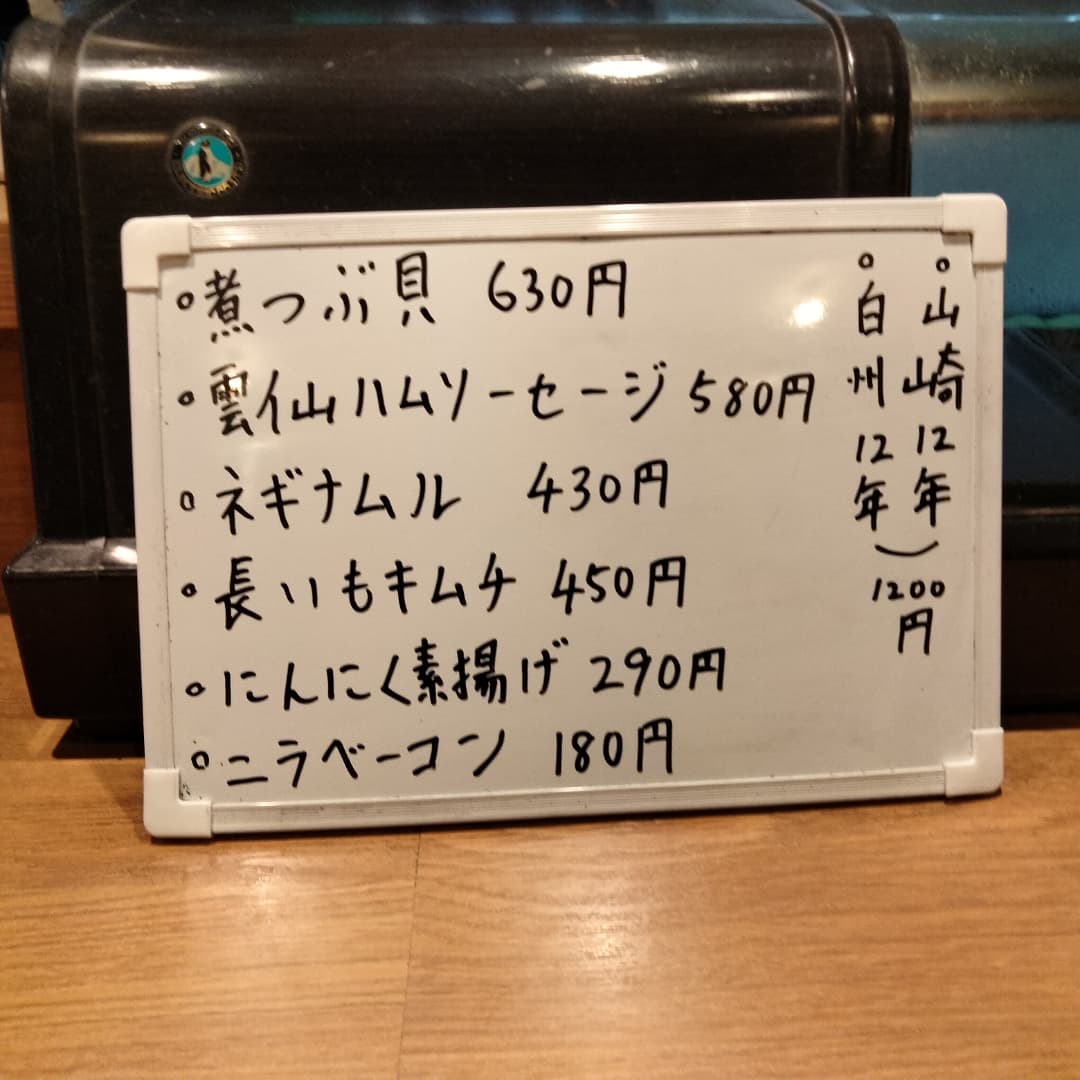 ◦煮つぶ貝 630円
◦雲仙ハムソーセージ 580円
◦ネギナムル 430円
◦長いもキムチ 450円
◦にんにく素揚げ 290円
◦ニラベーコン 180円
◦山崎12年
◦白州12年
1200円